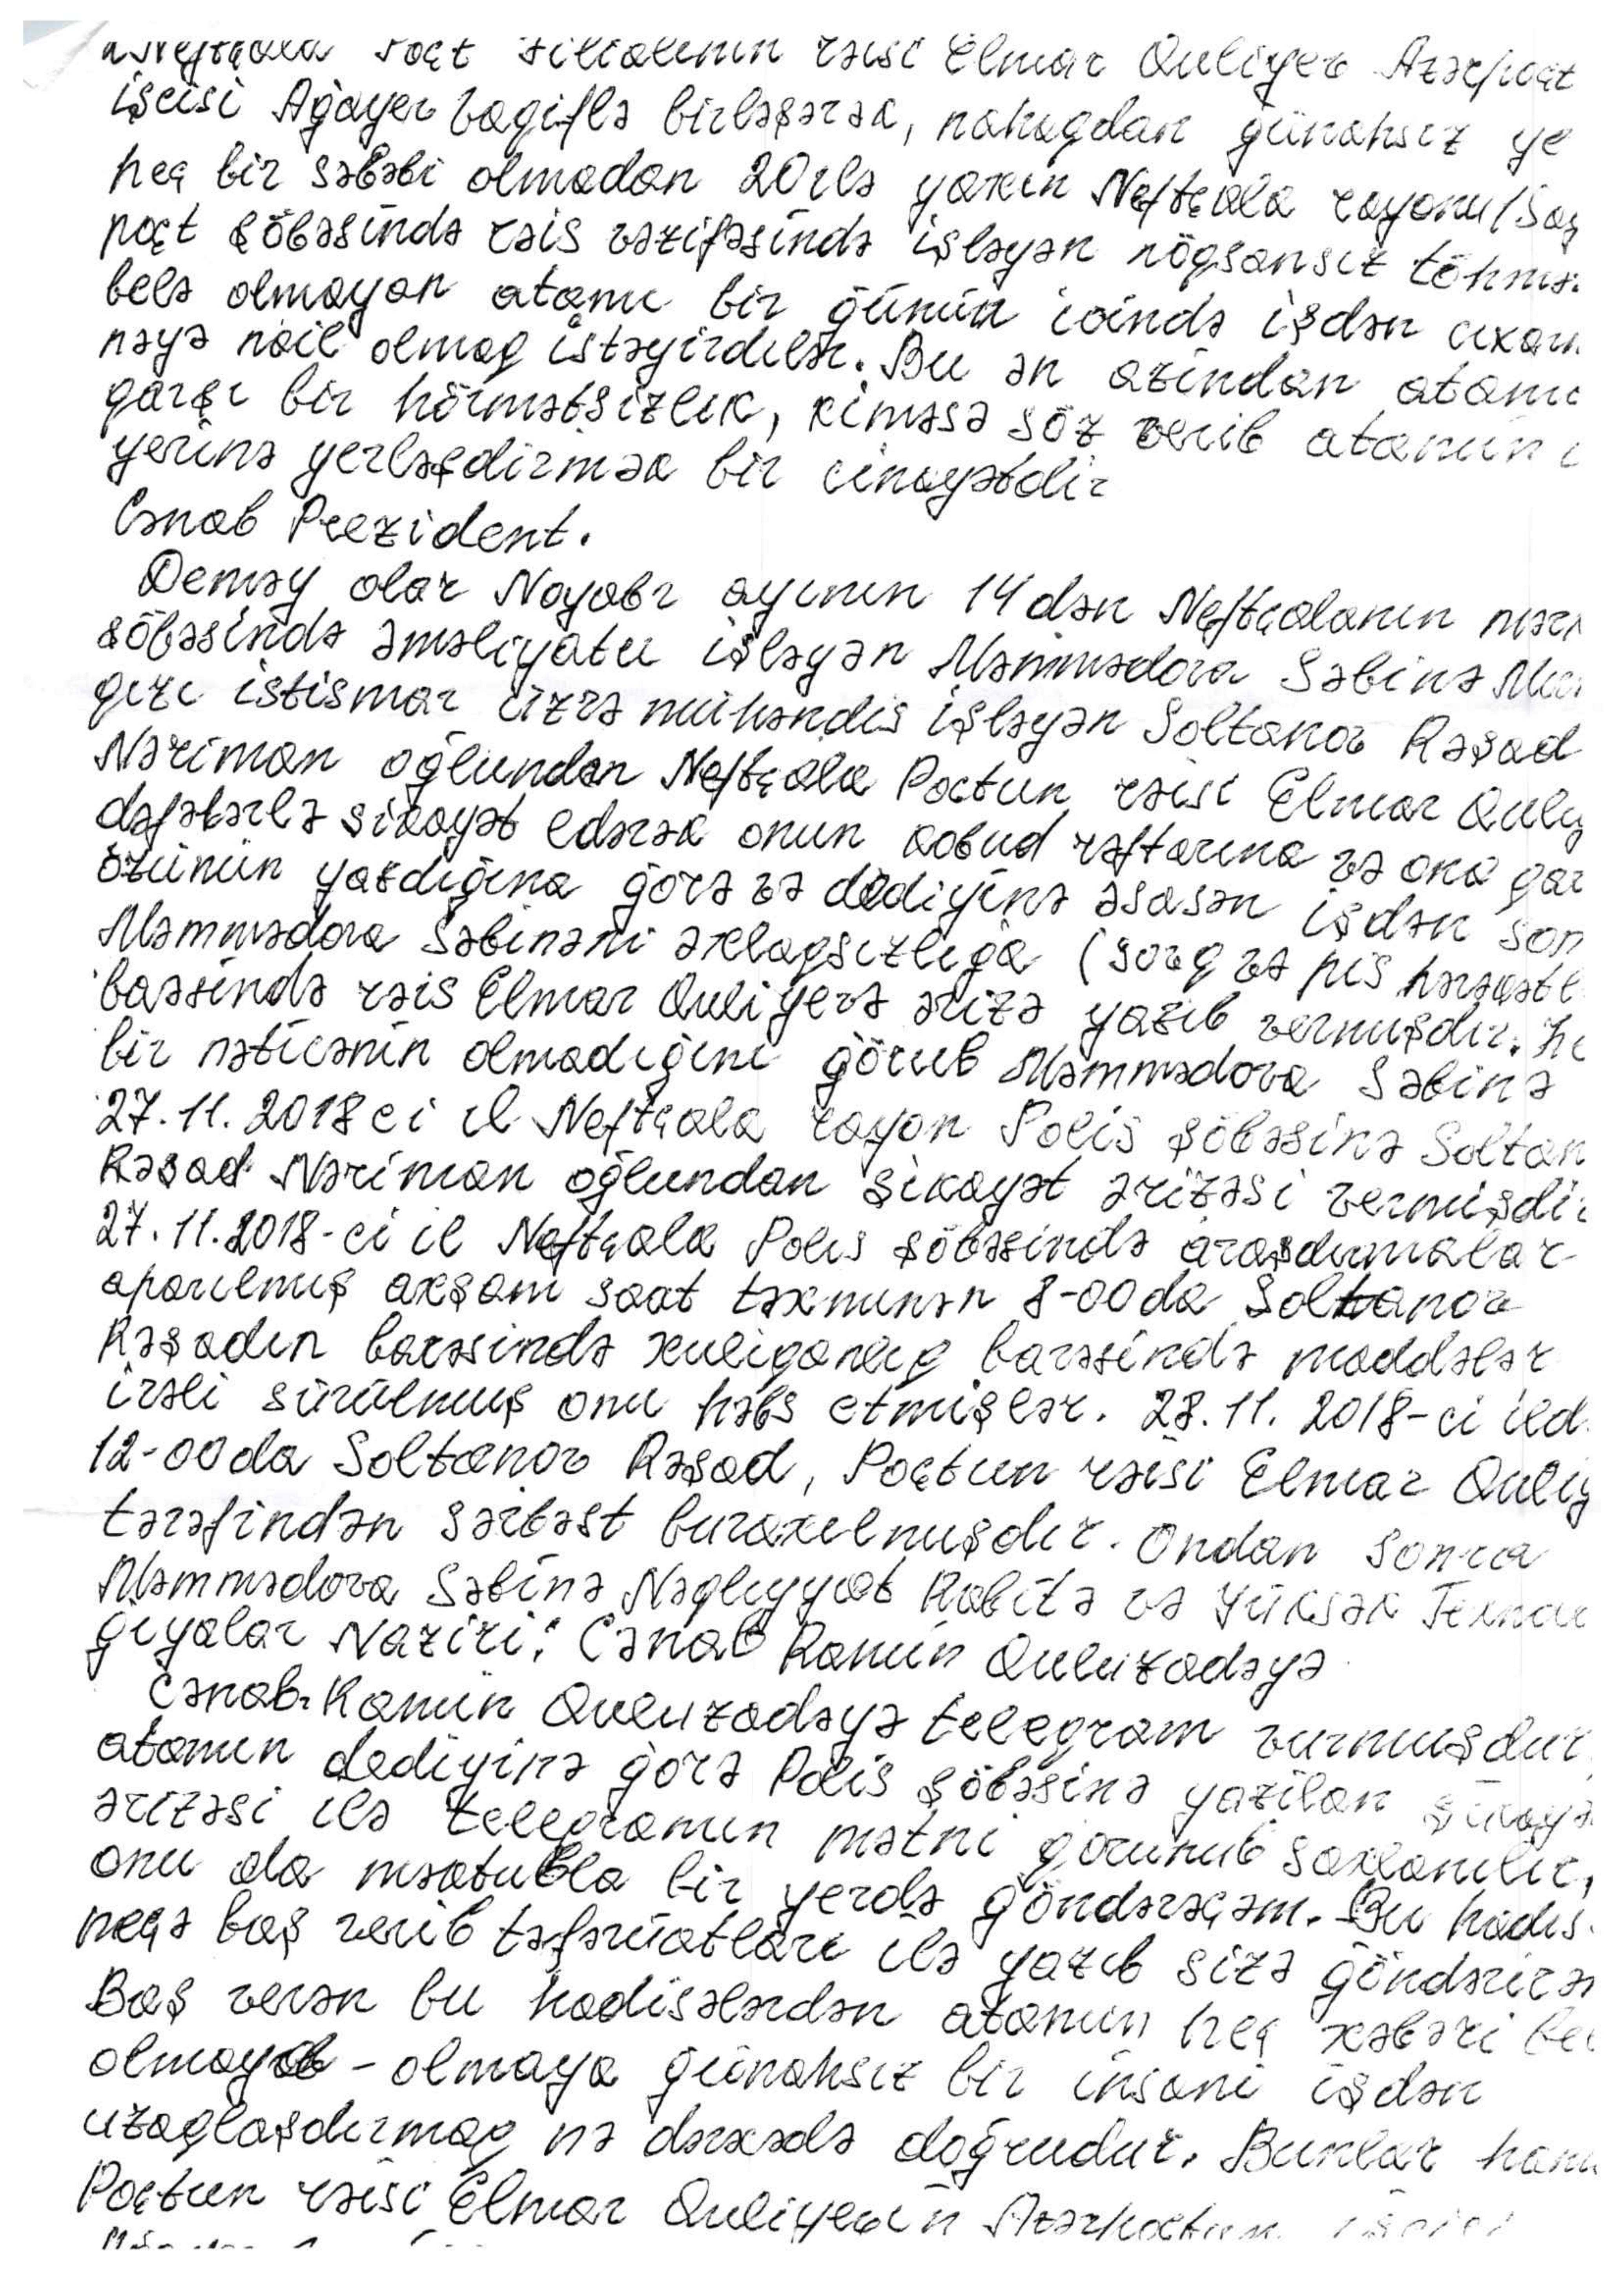 Neftçala Poçt filialının rəisi Elmar Quliyev Azərpoçt
işçisi Ağayev Vaqiflə birləşərək, nahaqdan günahsız ye
heç bir səbəbi olmadan 20 ilə yaxın Neftçala rayonu
poçt şöbəsində rəis vəzifəsində işləyən nögsansız töhmə
belə olmayan atamı bir günün içində işdən çıxarı
nəyə nail olmag istəyirdilər. Bu ən azından atamı
qarşı bir hörmətsizlik, kiməsə söz verib atamın i
yerinə yerləşdirmək bir cinayətdir
Cənab Prezident.
Deməy olar Noyabr ayının 14 dən Neftçalanın mər
şöbəsində əməliyatçı işləyən Məmmədova Səbinə
qızı istismar üzrə mühəndis işləyən Soltanov Rəşad
Nəriman oğlundan Neftçala Poçtun rəisi Elmar Quliy
dəfələrlə şikayət edərək onun kobud rəftarına və ona qar
özünün yazdığına görə və dediyinə əsasən işdən son
Məmmədova Səbinəni əxlaqsızlığa (sorğ və pis hərəkətl
barəsində rəis Elmar Quliyevə ərizə yazıb vermişdir. he
bir nəticənin olmadığını görüb Məmmədova Səbinə
27.11.2018 ci il Neftçala rayon Polis şöbəsinə Soltan
Rəşad Nəriman oğlundan şikayət ərizəsi vermişdir
27.11.2018-ci il Neftçala Polis şöbəsində araşdırmalar
aparılmış axşam saat təxminən 8-00 da Soltanov
Rəşadın barəsində xuliqanlıg barəsində maddələr
irəli sürülmüş onu həbs etmişlər. 28.11.2018-ci ild
12-00 da Soltanov Rəşad, Poçtun rəisi Elmar Quliy
tərəfindən sərbəst buraxılmışdır. Ondan sonra
Məmmədova Səbinə Nəqliyyat Rabitə və Yüksək Texnal
giyalar Naziri: Cənab Ramin Quluzadəyə
Cənab Ramin Quluzadəyə telegram vurmuşdur
atamın dediyinə görə Polis şöbəsinə yazılan şikayə
ərizəsi ilə telegramın mətni qorunub saxlanılır,
onu da məktubla bir yerdə göndərəcəm. Bu hadis
necə baş verib təfərüatları ilə yazıb sizə göndərirəm
Baş verən bu hadisələrdən atamın heç xəbəri be
olmayıb - olmaya günahsız bir insanı işdən
uzaqlaşdırmag nə dərəcədə doğrudur. Bunlar hamı
Poçtun rəisi Elmar Quliyevin Azərpoçtun işçisi